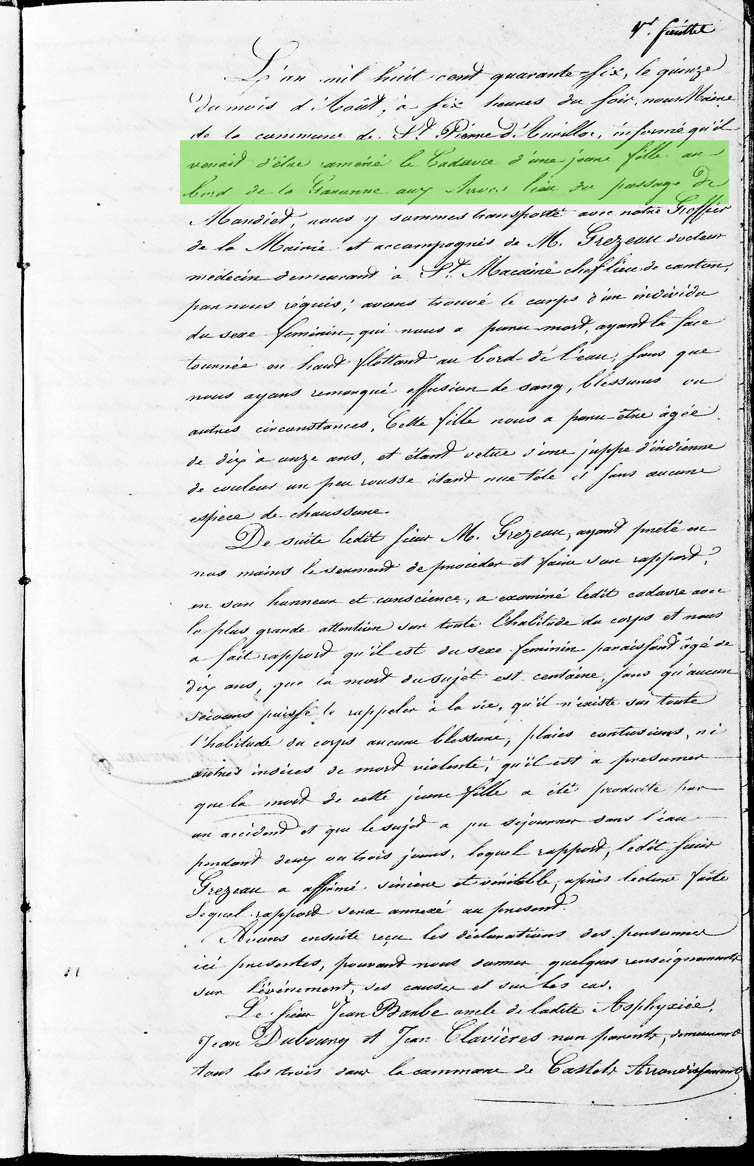 1er. feuillet
L'an mil huit cent quarante-six, le quinze
du mois d'Août, à six heures du soir, nous Maire
de la commune de St. Pierre d'Aurillac, informé qu'il
venait d'être ramené le Cadavre d'une jeune fille au
bord de la Garonne aux lieu du passage de
Mondiet, nous y sommes transporté avec notre Greffier
de la Mairie et accompagnés de M. Grezeau docteur
médecin demeurant à St. Macaire chef lieu de canton,
par nous réquis; avons trouvé le corps d'un individu
du sexe feminin, qui nous a paru mort, ayant la face
tournée en haut flottand au bord de l'eau, sans que
nous ayons remarqué effusion de sang, blessures ou
autres circonstances, Cette fille nous a paru être âgée
de dix à onze ans, et étant vetue d'une juppe d'indienne
de couleur un peu rousse étant nue tête et sans aucune
espèce de chaussure.
De suite ledit sieur M. Grezeau, ayant prêté en
nos mains le serment de procéder et faire son rapport,
en son honneur et conscience, a examiné ledit cadavre avec
la plus grande attention sur toute l'habitude du corps et nous
a fait rapport qu'il est du sexe feminin paraissant âgé de
dix ans, que la mort du sujet est certaine, sans qu'aucun
secours puisse le rappeler à la vie, qu'il n'existe sur toute
l'habitude du corps aucune blessure, plaies contusions, ni
autres indices de mort violente; qu'il est a presumer
que la mort de cette jeune fille a été produite par
un accident et que le sujet a pu sejourner sous l'eau
pendant deux ou trois jours, lequel rapport, ledit sieur
Grezeau a affirmé sincère et véritable, après lecture faite
Lequel rapport sera annexé au present.
Avons ensuite reçu les déclarations des personnes
ici presentes, pouvant nous donner quelques renseignements
sur l'événement, ses causes et sur les cas.
Le sieur Jean Barbe oncle de ladite Asphyxiée,
Jean Dubourg et Jean Clavières non parents, demeurant
tous les trois dans la commune de Castets Arrondissement